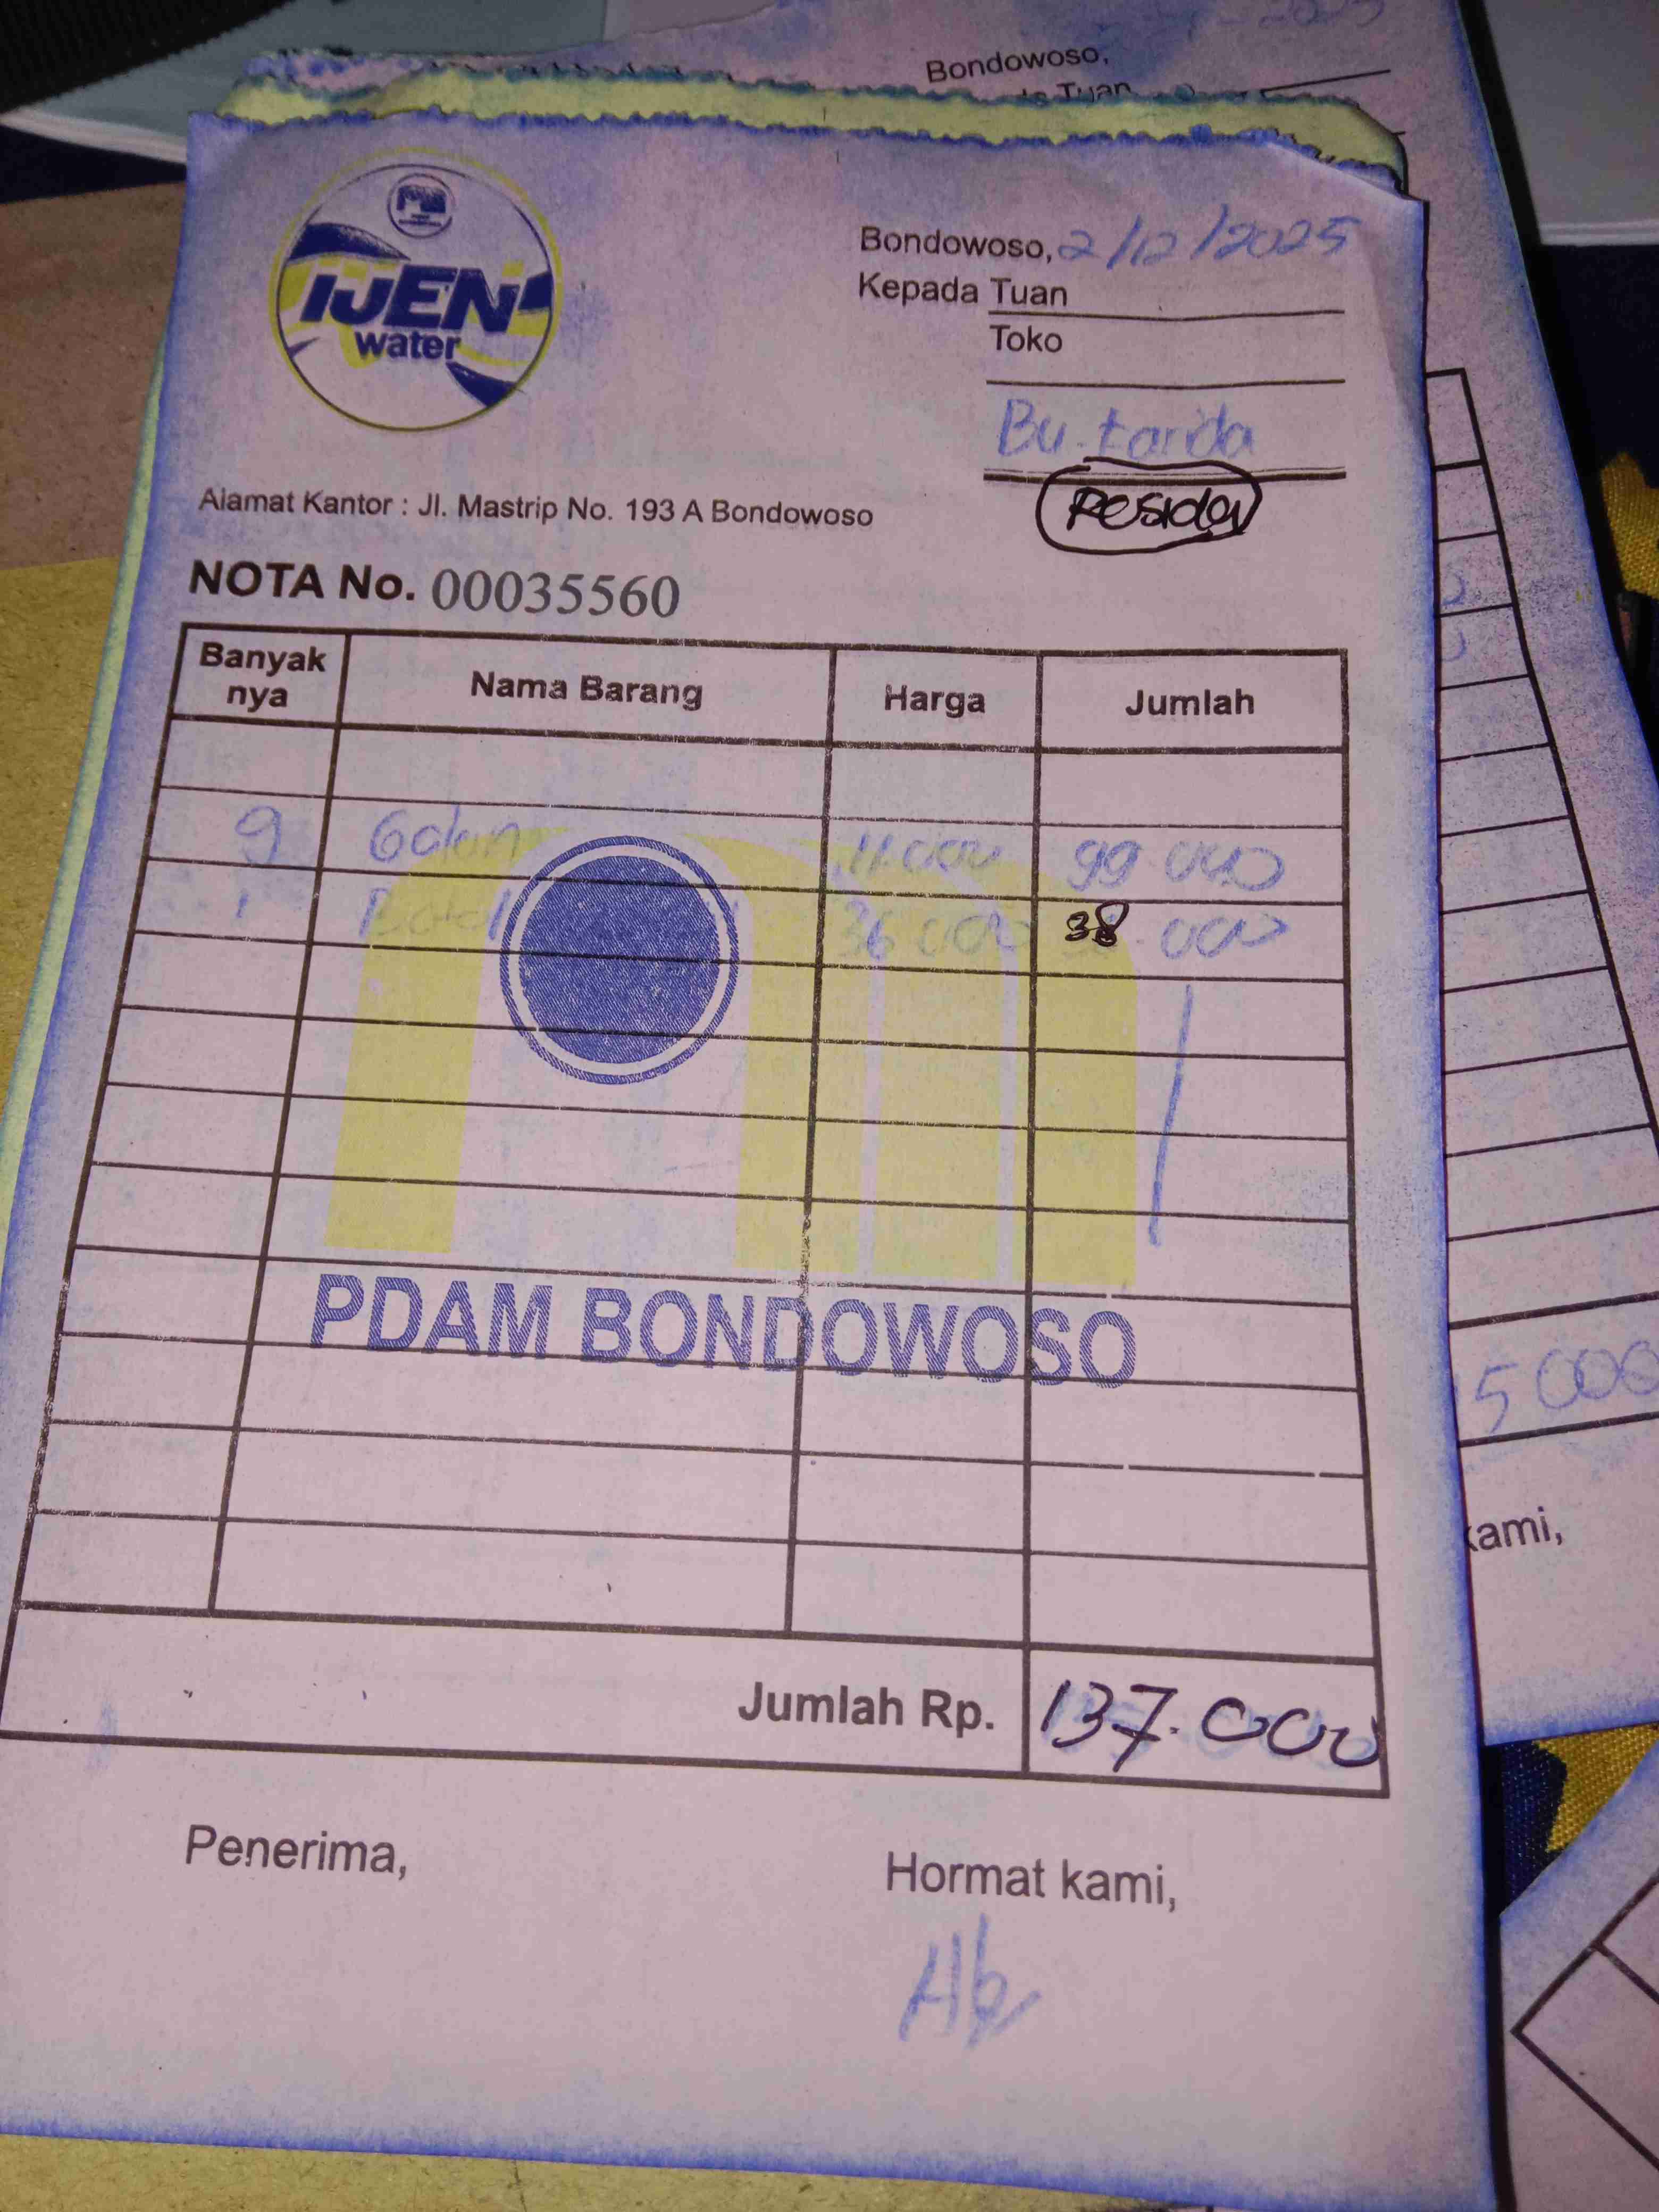 Bondowoso,
Tuan
IJEN
water
Bondowoso, 2/12/2025
Kepada Tuan
Toko
Bu. Farida
Alamat Kantor : Jl. Mastrip No. 193 A Bondowoso
NOTA No. 00035560
Banyak nya Nama Barang Harga Jumlah
9 Galon 11.000 99.000
1 36.000 38.000
PDAM BONDOWOSO
5000
Jumlah Rp. 137.000
kami,
Penerima, Hormat kami,